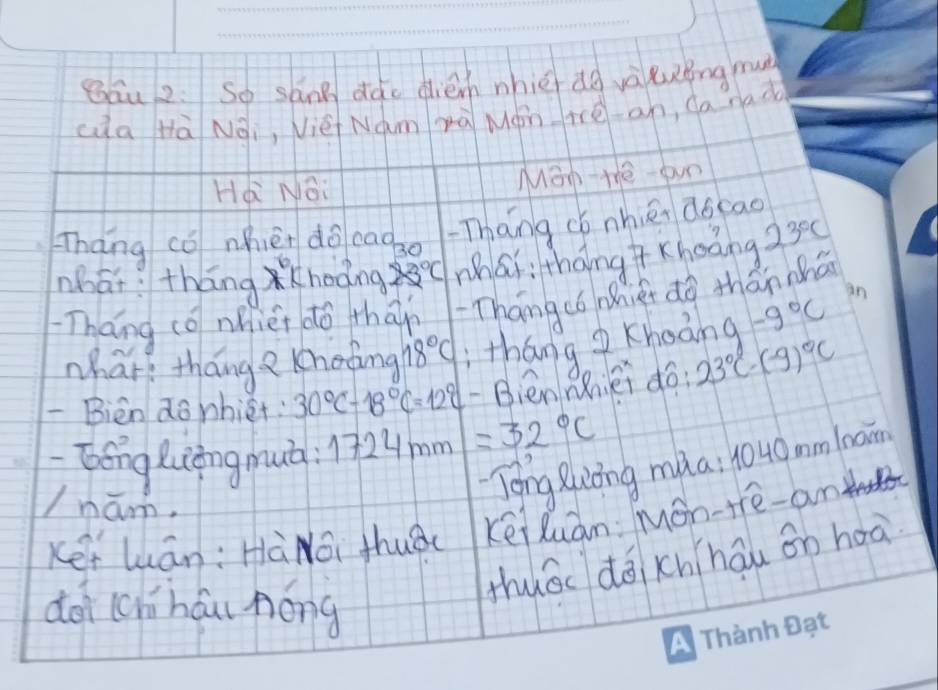 Câu 2: So sánh đặc điểm nhiệt độ và lượng mưa
của Hà Nội, Việt Nam và Môn-trê-an, Ca na da
Hà Nội
- Tháng có nhiệt độ cao
nhất: tháng 6 khoảng 30°C
- Tháng có nhiệt độ thấp
nhất: tháng 2 khoảng 18°C
- Biên độ nhiệt: 30°C-18°C=12°C
- Tổng lượng mưa: 1724 mm
/ năm.
Kết luận: Hà Nội thuộc
đới khí hậu nóng
Môn-trê-an
- Tháng có nhiệt độ cao
nhất: tháng 7 khoảng 23°C
- Tháng có nhiệt độ thấp nhất
: tháng 2 khoảng -9°C
- Biên nhiệt độ: 23°C-(9)°C
= 32°C
- Tổng lượng mưa: 1040 mm/năm
Kết luận: Môn-trê-an
thuộc đới khí hậu ôn hoà.
A Thành Đạt